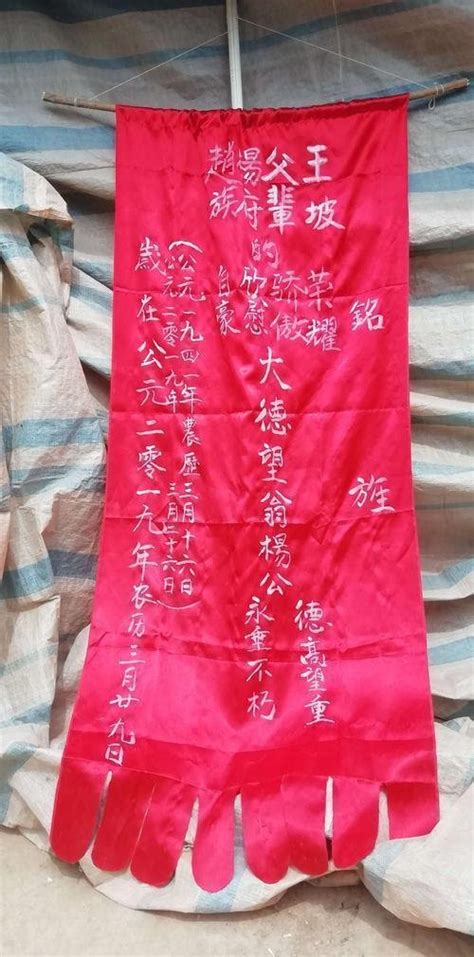 銘旌
王坡
父輩
府
趙族
的
荣耀
骄傲
欣慰
自豪
大德望翁楊公
德高望重
永垂不朽
(公元一九四一年農歷三月十六日
公元二零一九年三月二十六日)
歲在公元二零一九年农历三月廿九日